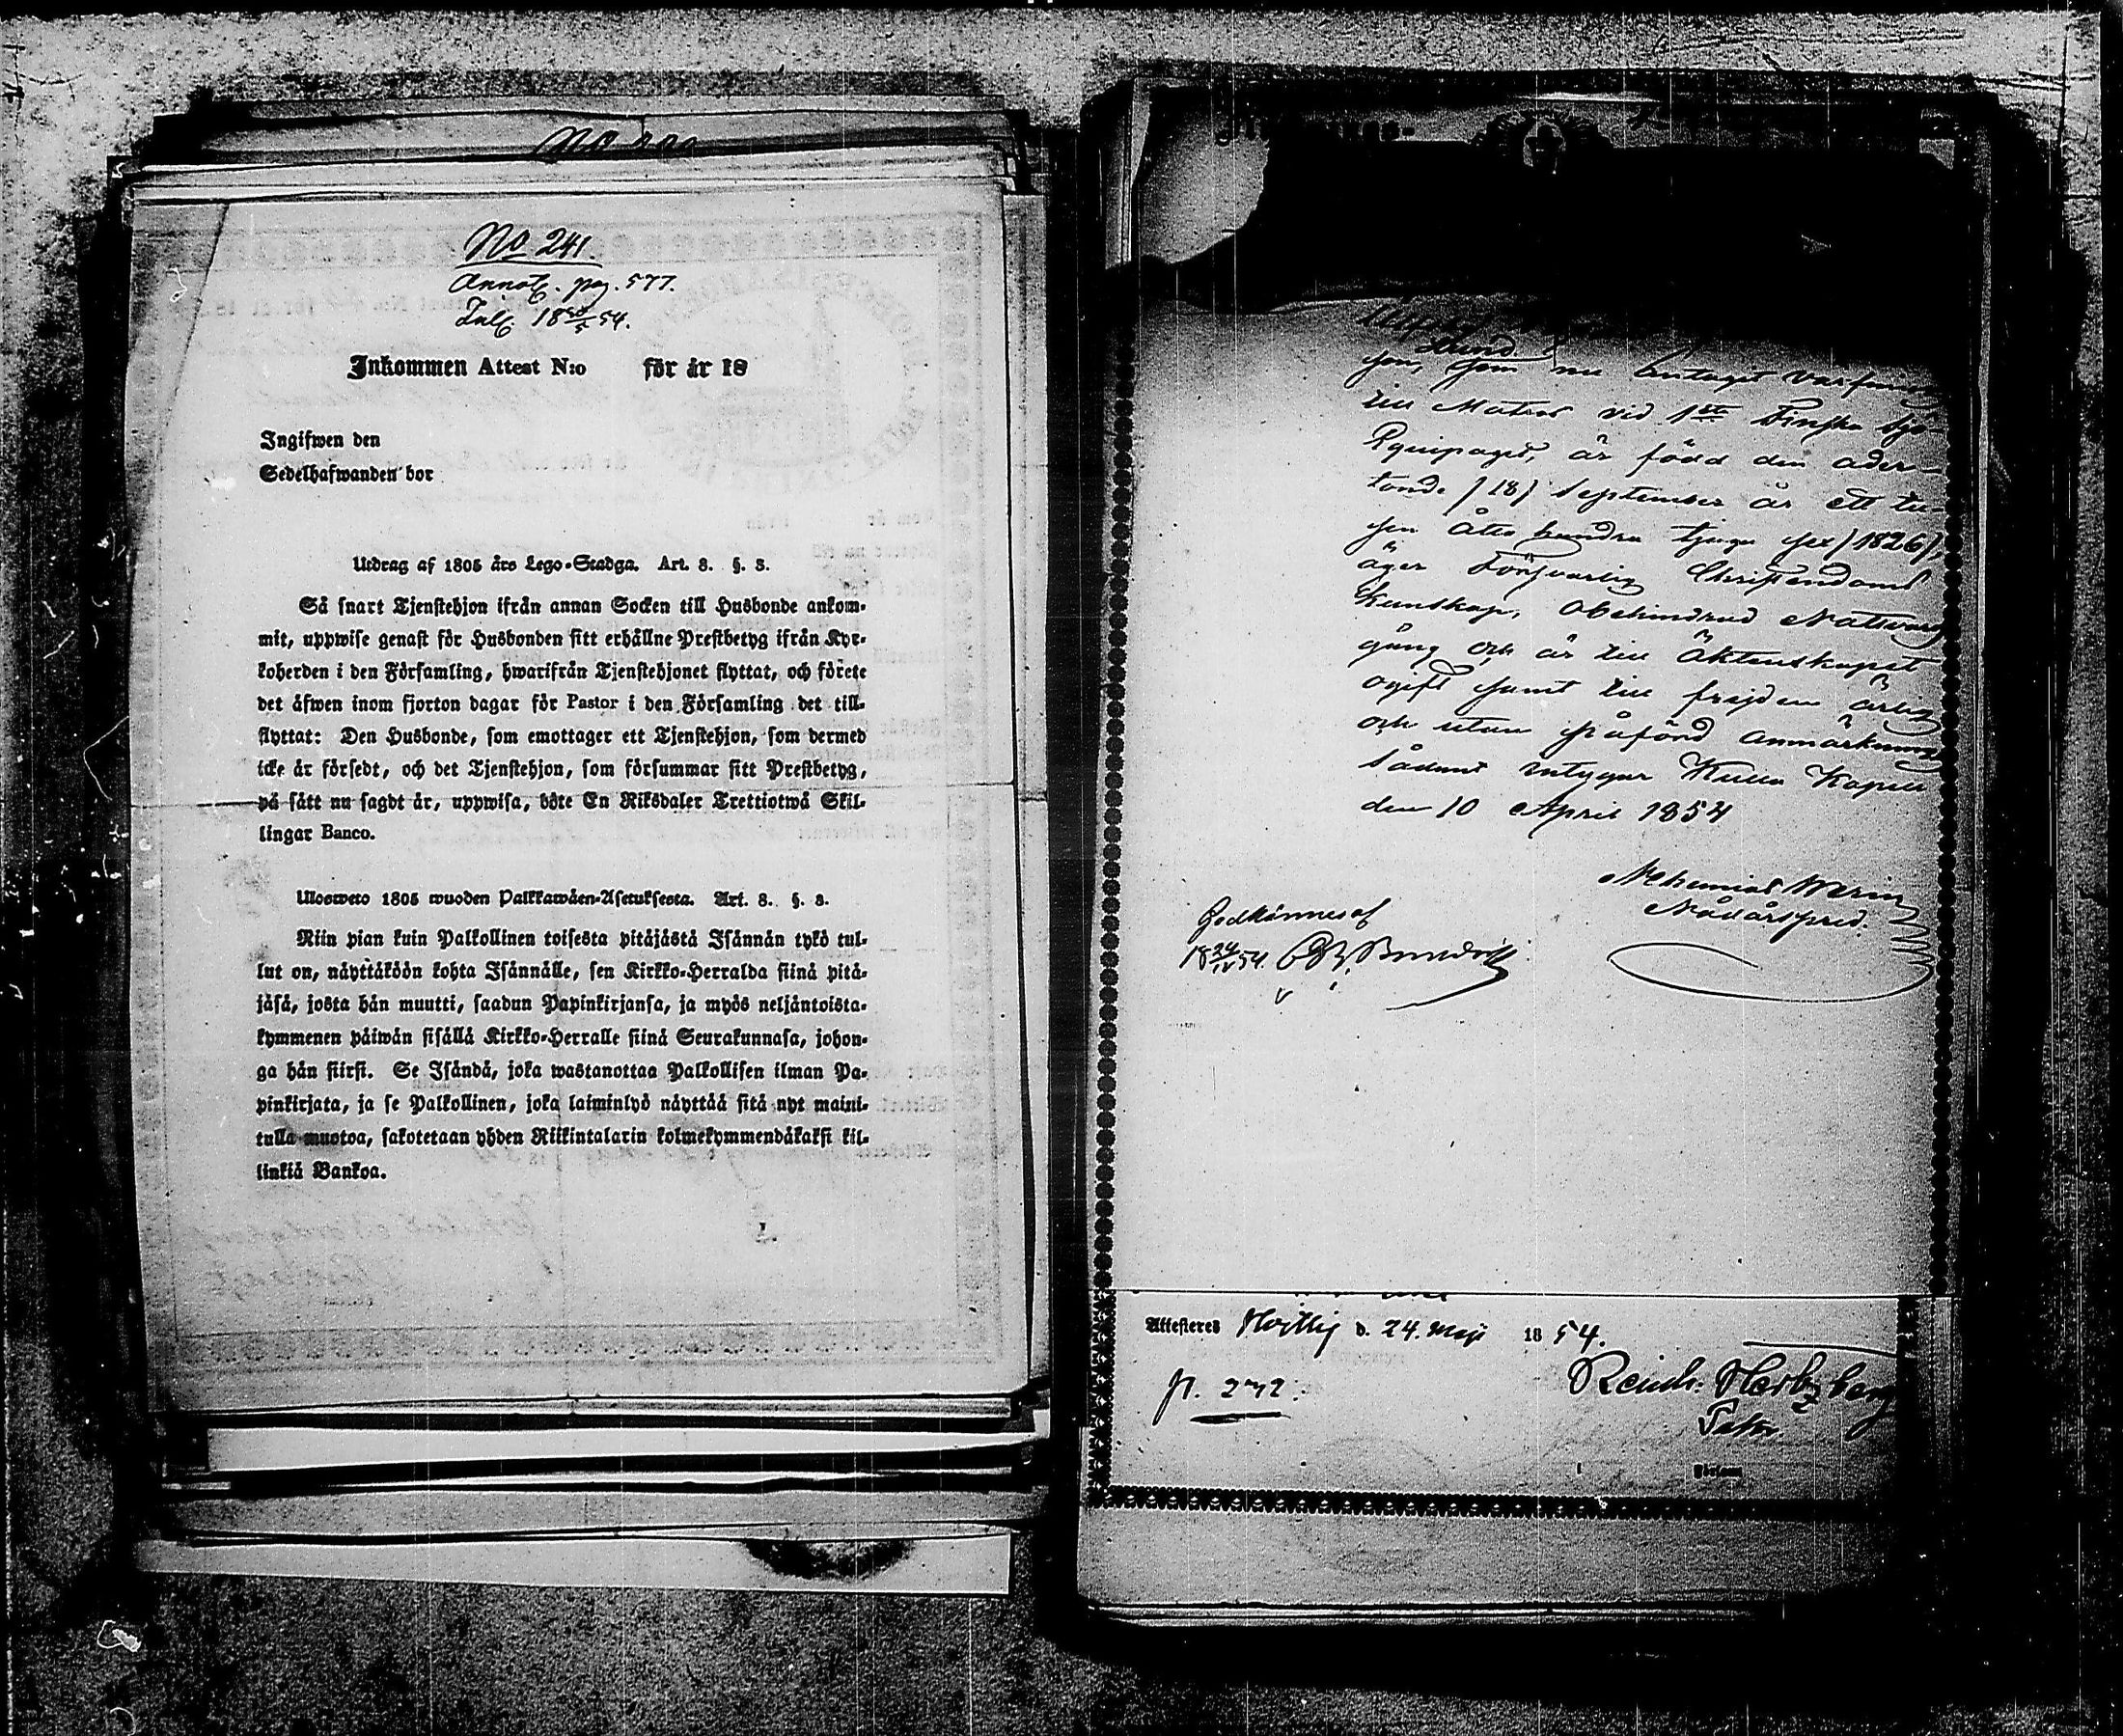 No 241.
Annot. pag. 577.
18 5 54.
Inkommen Attest N:o för år 18
Ingifwen den
Sedelhafwanden bor
Utdrag af 1805 års Lego-Stadga. Art. 8. §. 3.
Så snart Tjenstehjon ifrån annan Socken till Husbonde ankom-
mit, uppwise genast för Husbonden sitt erhållne Prestbetyg ifrån Kyr-
koherden i den Församling, hwarifrån Tjenstehjonet flyttat, och förete
det äfwen inom fjorton dagar för Pastor i den Församling det till-
flyttat: Den Husbonde, som emottager ett Tjenstehjon, som dermed
icke är försedt, och det Tjenstehjon, som försummar sitt Prestbetyg,
på sätt nu sagdt är, uppwisa, böte En Riksdaler Trettiotwå Skil-
lingar Banco.
Ulosweto 1805 wuoden Palkkawäen-Asetuksesta. Art. 8. §. 3.
Niin pian kuin Palkollinen toisesta pitäjästä Isännän tykö tul-
lut on, näyttäköön kohta Isännälle, sen Kirkko-Herralda siinä pitä-
jäsä, josta hän muutti, saadun Papinkirjansa, ja myös neljäntoista-
kymmenen päiwän sisällä Kirkko-Herralle siinä Seurakunnasa, johon-
ga hän siirsi. Se Isändä, joka wastanottaa Palkollisen ilman Pa-
pinkirjata, ja se Palkollinen, joka laiminlyö näyttää sitä nyt maini-
tulla muotoa, sakotetaan yhden Riikintalarin kolmekymmendäkaksi kil-
linkiä Bankoa.
Lund
som nu antaget
till Matros vid 1sta Finska Sjö-
Equipaget, är född den ader-
tonde /18/ September år ett tu-
sen åtta hundra tjugu sex /1826/,
äger försvarlig Christendoms
kunskap, obehindrad Nattvards
gång och är till Äktenskapet
ogift samt till frejden ärlig
och utan påförd anmärkning
Sådant intygar Kulla Kapell
den 10 April 1854
Nehemias
Nådårspred.
Godkännes af
18 24/IV 54.
Attesteres d. 24. Maji 18 54.
Reinh. Hertzberg
p. 242.